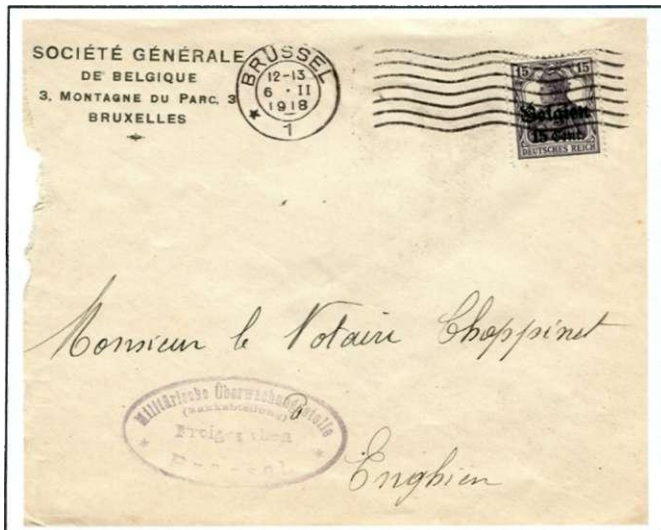 SOCIÉTÉ GÉNÉRALE
DE BELGIQUE
3, MONTAGNE DU PARC, 3
BRUXELLES
BRUSSEL
12-13
6 · II
1918
1
15 15
Belgien
15 Cent.
DEUTSCHES REICH
Monsieur le Notaire Choppinet
Enghien
Militärische Überwachungsstelle
(Bankabteilung)
Freigegeben
Brussel